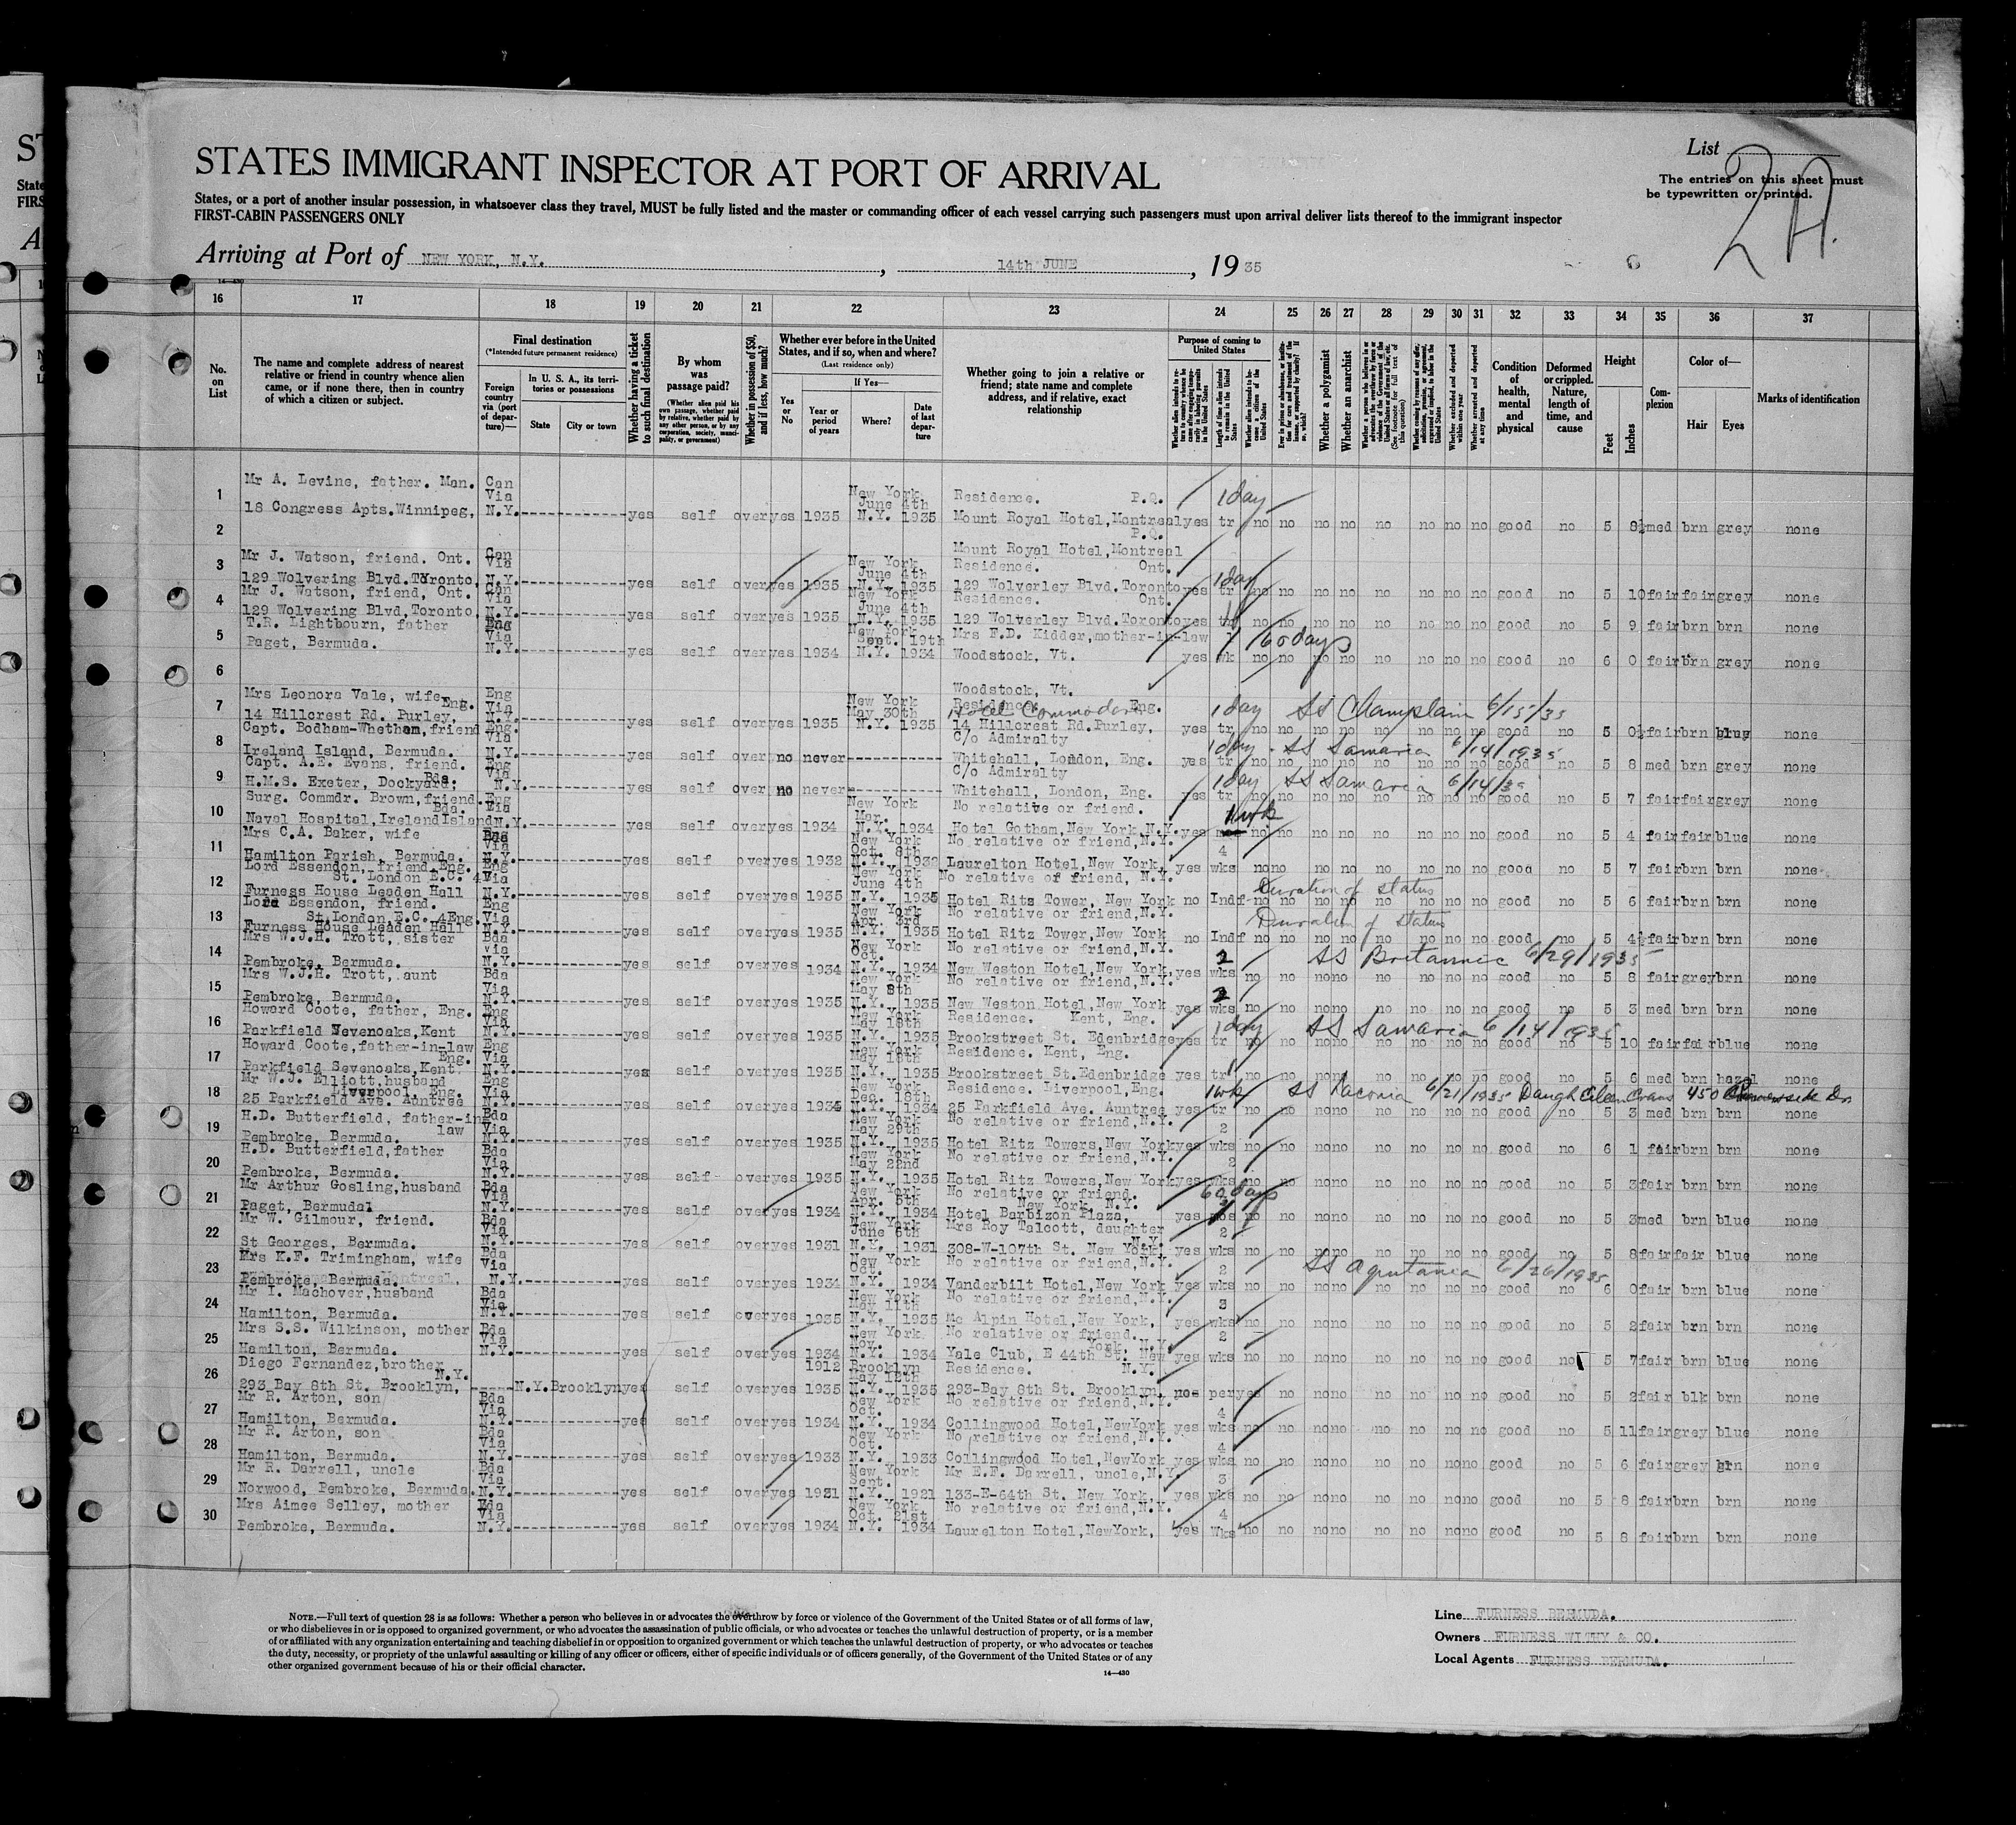 STATES IMMIGRANT INSPECTOR AT PORT OF ARRIVAL
States, or a port of another insular possession, in whatsoever class they travel, MUST be fully listed and the master or commanding officer of each vessel carrying such passengers must upon arrival deliver lists thereof to the immigrant inspector
FIRST-CABIN PASSENGERS ONLY
List
The entries on this sheet must
be typewritten or printed.
2A.
Arriving at Port of NEW YORK, N.Y. , 14th JUNE , 1935
16 17 18 19 20 21 22 23 24 25 26 27 28 29 30 31 32 33 34 35 36 37
No. on List
The name and complete address of nearest relative or friend in country whence alien came, or if none there, then in country of which a citizen or subject.
Final destination
(*Intended future permanent residence)
Foreign country via (port of departure)—
In U. S. A., its territories or possessions
State City or town
Whether having a ticket to such final destination
By whom was passage paid?
(Whether alien paid his own passage, whether paid by relative, whether paid by any other person, or by any corporation, society, municipality, or government)
Whether in possession of $50, and if less, how much?
Whether ever before in the United States, and if so, when and where?
(Last residence only)
Yes or No
If Yes—
Year or period of years
Where?
Date of last departure
Whether going to join a relative or friend; state name and complete address, and if relative, exact relationship
Purpose of coming to United States
Whether a polygamist
Whether an anarchist
Condition of health, mental and physical
Deformed or crippled. Nature, length of time, and cause
Height
Feet Inches
Complexion
Color of—
Hair Eyes
Marks of identification
1 Mr A. Levine, father. Man. Can Via New York June 4th Residence. P.Q. 1 day
18 Congress Apts.Winnipeg, N.Y. yes self over yes 1935 N.Y. 1935 Mount Royal Hotel,Montreal yes tr no no no no no no no no good no 5 8½ med brn grey none
2 P.Q.
Mount Royal Hotel,Montreal
3 Mr J. Watson, friend. Ont. Can Via New York June 4th Residence. Ont. 1 day
129 Wolvering Blvd.Toronto, N.Y. yes self over yes 1935 N.Y. 1935 129 Wolverley Blvd.Toronto yes tr no no no no no no no no good no 5 10 fair fair grey none
4 Mr J. Watson, friend, Ont. Can Via New York June 4th Residence. Ont.
129 Wolvering Blvd,Toronto, N.Y. yes self over yes 1935 N.Y. 1935 129 Wolverley Blvd.Toronto yes tr no no no no no no no no good no 5 9 fair brn brn none
5 T.R. Lightbourn, father Via New York Sept. 19th Mrs F.D. Kidder,mother-in-law 60 days
Paget, Bermuda. N.Y. yes self over yes 1934 N.Y. 1934 Woodstock, Vt. yes wk no no no no no no no no good no 6 0 fair brn grey none
6 Woodstock, Vt.
7 Mrs Leonora Vale, wife Eng. Eng Via New York May 30th Residence. Eng. Hotel Commodore 1 day SS Champlain 6/15/35
14 Hillcrest Rd. Purley, N.Y. yes self over yes 1935 N.Y. 1935 14 Hillcrest Rd.Purley, yes tr no no no no no no no no good no 5 0½ fair brn blue none
8 Capt. Bodham-Whetham,friend Eng. Via C/o Admiralty 1 day SS Samaria 6/14/1935
Ireland Island, Bermuda. N.Y. yes self over no never Whitehall, London, Eng. yes tr no no no no no no no no good no 5 8 med brn grey none
9 Capt. A.E. Evans, friend. Eng Via C/o Admiralty 1 day SS Samaria 6/14/35
H.M.S. Exeter, Dockyard, Bda. N.Y. yes self over no never Whitehall, London, Eng. yes tr no no no no no no no no good no 5 7 fair fair grey none
10 Surg. Commdr. Brown,friend. Bda. Eng Via New York Mar. No relative or friend. 1 wk
Naval Hospital,Ireland Island N.Y. yes self over yes 1934 N.Y. 1934 Hotel Gotham,New York N.Y. yes no no no no no no no no good no 5 4 fair fair blue none
11 Mrs C.A. Baker, wife Via New York Oct. 8th No relative or friend,N.Y. 4
Hamilton Parish, Bermuda. N.Y. yes self over yes 1932 N.Y. 1932 Laurelton Hotel,New York, yes wks no no no no no no no no good no 5 7 fair brn brn none
12 Lord Essendon, friend.Eng. St. London E.C. 4 Eng Via New York June 4th No relative or friend, N.Y. Duration of status
Furness House Leaden Hall N.Y. yes self over yes 1935 N.Y. 1935 Hotel Ritz Tower, New York no Indf no no no no no no no no good no 5 6 fair brn brn none
13 Lord Essendon, friend. St.London,E.C. 4Eng. Eng Via New York Apr. 3rd No relative or friend,N.Y. Duration of status
Furness House Leaden Hall N.Y. yes self over yes 1935 N.Y. 1935 Hotel Ritz Tower,New York no Indf no no no no no no no no good no 5 4½ fair brn brn none
14 Mrs W.J.H. Trott, sister Bda Via New York Oct. No relative or friend,N.Y. 2 SS Britannic 6/29/1935
Pembroke, Bermuda. N.Y. yes self over yes 1934 N.Y. 1934 New Weston Hotel,New York, yes wks no no no no no no no no good no 5 8 fair grey brn none
15 Mrs W.J.H. Trott, aunt Bda Via New York May 8th No relative or friend,N.Y. 2
Pembroke, Bermuda. N.Y. yes self over yes 1935 N.Y. 1935 New Weston Hotel,New York yes wks no no no no no no no no good no 5 3 med brn brn none
16 Howard Coote, father, Eng. Eng Via New York May 18th Residence. Kent, Eng. 1 day SS Samaria 6/14/1935
Parkfield Sevenoaks,Kent N.Y. yes self over yes 1935 N.Y. 1935 Brookstreet St. Edenbridge yes tr no no no no no no no no good no 5 10 fair fair blue none
17 Howard Coote,father-in-law Eng. Eng Via New York May 18th Residence. Kent, Eng.
Parkfield Sevenoaks,Kent. N.Y. yes self over yes 1935 N.Y. 1935 Brookstreet St.Edenbridge yes tr no no no no no no no no good no 5 6 med brn hazel none
18 Mr W.J. Elliott,husband Liverpool, Eng. Eng Via New York Dec. 18th Residence. Liverpool,Eng. 1 wk SS Laconia 6/21/1935 Daugh Eileen Evans 450 Riverside Dr
25 Parkfield Ave. Auntree N.Y. yes self over yes 1934 N.Y. 1934 25 Parkfield Ave. Auntree yes tr no no no no no no no no good no 5 3 med brn brn none
19 H.D. Butterfield, father-in law Bda Via New York May 29th No relative or friend,N.Y. 2
Pembroke, Bermuda. N.Y. yes self over yes 1935 N.Y. 1935 Hotel Ritz Towers,New York yes wks no no no no no no no no good no 6 1 fair brn brn none
20 H.D. Butterfield,father Bda Via New York May 22nd No relative or friend,N.Y. 2
Pembroke, Bermuda. N.Y. yes self over yes 1935 N.Y. 1935 Hotel Ritz Towers,New York yes wks no no no no no no no no good no 5 3 fair brn brn none
21 Mr Arthur Gosling,husband Bda Via New York Apr. 5th No relative or friend. New York, N.Y. 60 days
Paget, Bermuda. N.Y. yes self over yes 1934 N.Y. 1934 Hotel Barbizon Plaza, yes mos no no no no no no no no good no 5 3 med brn blue none
22 Mr W. Gilmour, friend. Bda Via New York June 6th Mrs Roy Talcott, daughter N.Y. 2
St Georges, Bermuda. N.Y. yes self over yes 1931 N.Y. 1931 308-W-107th St. New York, yes wks no no no no no no no no good no 5 8 fair fair blue none
23 Mrs K.F. Trimingham, wife Bda Via New York Oct. No relative or friend,N.Y. 2 SS Aquitania 6/26/1935
Pembroke, Bermuda. N.Y. yes self over yes 1934 N.Y. 1934 Vanderbilt Hotel,New York yes wks no no no no no no no no good no 6 0 fair brn blue none
24 Mr I. Machover,husband Bda Via New York May 11th No relative or friend,N.Y. 3
Hamilton, Bermuda. N.Y. yes self over yes 1935 N.Y. 1935 Mc Alpin Hotel,New York, yes wks no no no no no no no no good no 5 2 fair brn brn none
25 Mrs S.S. Wilkinson, mother Bda Via New York Nov. No relative or friend. York, N.Y. 2
Hamilton, Bermuda. N.Y. yes self over yes 1934 N.Y. 1934 Yale Club, E 44th St. New yes wks no no no no no no no no good no 5 7 fair brn blue none
26 Diego Fernandez,brother N.Y. 1912 Brooklyn May 12th Residence. N.Y.
293 Bay 8th St. Brooklyn, N.Y. Brooklyn yes self over yes 1935 N.Y. 1935 293-Bay 8th St. Brooklyn, no per yes no no no no no no no good no 5 2 fair blk brn none
27 Mr R. Arton, son Bda Via New York Oct. No relative or friend,N.Y. 4
Hamilton, Bermuda. N.Y. yes self over yes 1934 N.Y. 1934 Collingwood Hotel,NewYork yes wks no no no no no no no no good no 5 11 fair grey blue none
28 Mr R. Arton, son Bda Via New York Oct. No relative or friend,N.Y. 4
Hamilton, Bermuda. N.Y. yes self over yes 1933 N.Y. 1933 Collingwood Hotel,NewYork yes wks no no no no no no no no good no 5 6 fair grey brn none
29 Mr R. Darrell, uncle Bda Via New York Sept. Mr E.F. Darrell, uncle,N.Y. 3
Norwood, Pembroke, Bermuda. N.Y. yes self over yes 1921 N.Y. 1921 133-E-64th St. New York, yes wks no no no no no no no no good no 5 8 fair brn brn none
30 Mrs Aimee Selley, mother Bda Via New York Oct. 21st No relative or friend,N.Y. 4
Pembroke, Bermuda. N.Y. yes self over yes 1934 N.Y. 1934 Laurelton Hotel,NewYork, yes wks no no no no no no no no good no 5 8 fair brn brn none
NOTE.—Full text of question 28 is as follows: Whether a person who believes in or advocates the overthrow by force or violence of the Government of the United States or of all forms of law,
or who disbelieves in or is opposed to organized government, or who advocates the assassination of public officials, or who advocates or teaches the unlawful destruction of property, or is a member
of or affiliated with any organization entertaining and teaching disbelief in or opposition to organized government or which teaches the unlawful destruction of property, or who advocates or teaches
the duty, necessity, or propriety of the unlawful assaulting or killing of any officer or officers, either of specific individuals or of officers generally, of the Government of the United States or of any
other organized government because of his or their official character.
14—430
Line FURNESS BERMUDA.
Owners FURNESS WITHY & CO.
Local Agents FURNESS BERMUDA.